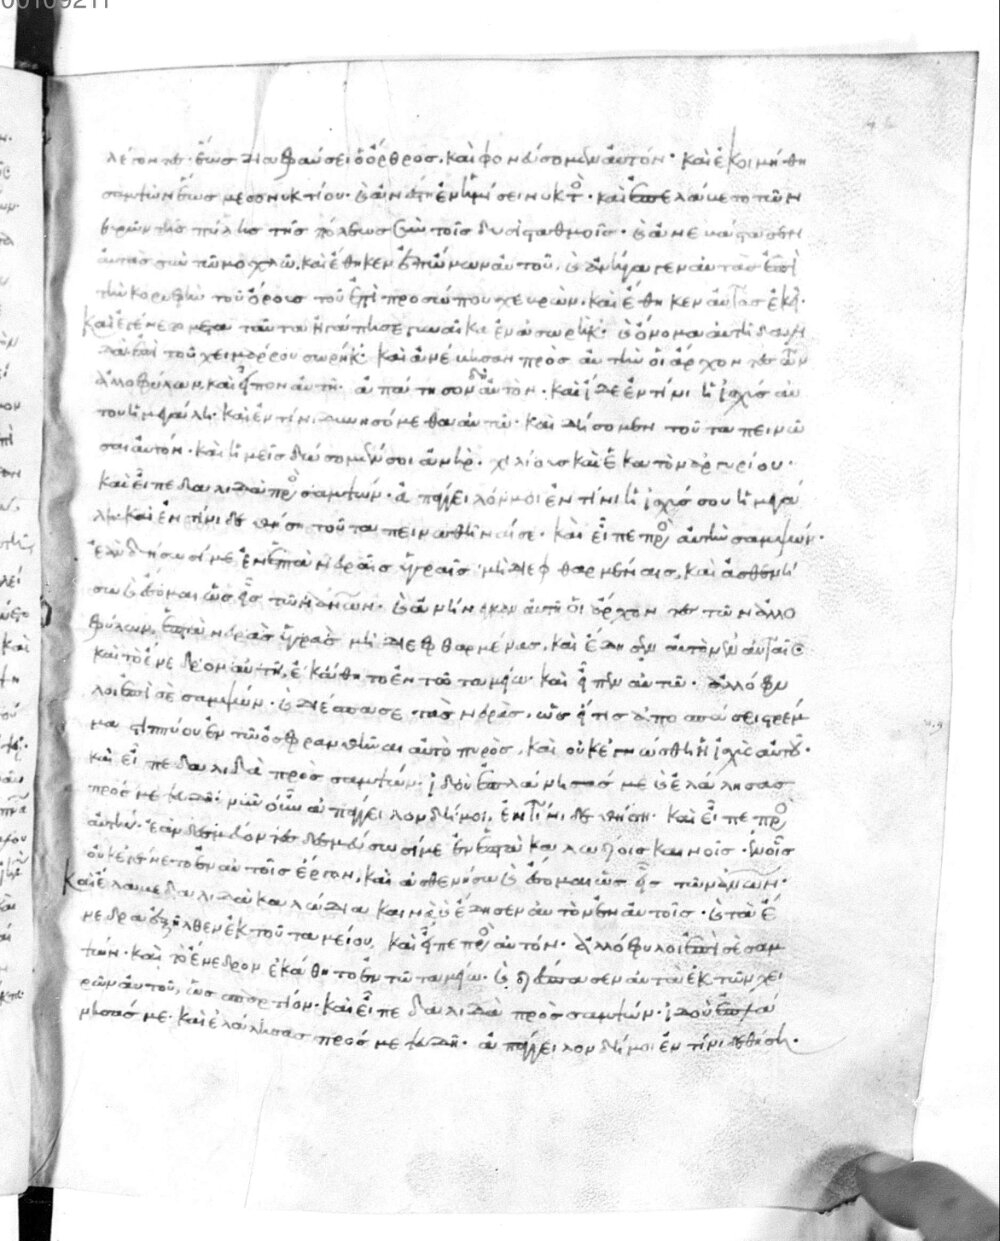 λέγοντες· ἕως διαφαύσει ὁ ὄρθρος, καὶ φονεύσομεν αὐτόν· καὶ ἐκοιμήθη
σαμψὼν ἕως μεσονυκτίου· καὶ ἀνέστη ἐν τῷ ἡμίσει τῆς νυκτὸς· καὶ ἐπελάβετο τῶν
θυρῶν τῆς πύλης τῆς πόλεως σὺν τοῖς δυσὶ σταθμοῖς· καὶ ἀνεβάστασεν
αὐτὰς σὺν τῶ μοχλῶ, καὶ ἔθηκεν ἐπὶ τῶ ὤμω αὐτοῦ, καὶ ἀνήνεγκεν αὐτὰς ἐπὶ
τὴν κορυφὴν τοῦ ὄρους τοῦ ἐπὶ προσώπου χεβρὼν, καὶ ἔθηκεν αὐτὰς ἐκεῖ·
Καὶ ἐγένετο μετὰ ταῦτα καὶ ἠγάπησε γυναῖκα ἐν σωρήκ· καὶ ὄνομα αὐτῆ δαλι
λὰ ἐπὶ τοῦ χειμάρρου σωρήκ· καὶ ἀνέβησαν πρὸς αὐτὴν οἱ ἄρχοντες τῶν
ἀλλοφύλων, καὶ εἶπον αὐτῆ· ἀπάτησον δὴ αὐτόν· καὶ ἴδε ἐν τίνι ἡ ἰσχὺς αὐ
τοῦ ἡ μεγάλη· καὶ ἐν τίνι δυνησόμεθα αὐτῶ· καὶ δήσομεν τοῦ ταπεινῶ
σαι αὐτόν· καὶ ἡμεῖς δώσομέν σοι ἀνὴρ χιλίους καὶ ἑκατὸν ἀργυρίου·
καὶ εἶπε δαλιδὰ πρὸς σαμψών· ἀπάγγειλόν μοι ἐν τίνι ἡ ἰσχύς σου ἡ μεγά
λη· καὶ ἐν τίνι δεθήση τοῦ ταπεινωθῆναί σε· καὶ εἶπε πρὸς αὐτὴν σαμψών·
ἐὰν δήσωσί με ἐν ἑπτὰ νευραῖς ὑγραῖς μὴ διεφθαρμέναις, καὶ ἀσθενή
σω καὶ ἔσομαι ὡς εἷς τῶν ἀνων· καὶ ἀνήνεγκαν αὐτῆ οἱ ἄρχοντες τῶν ἀλλο
φύλων, ἑπτὰ νευρὰς ὑγρὰς μὴ διεφθαρμένας, καὶ ἔδησεν αὐτὸν ἐν αὐταῖς
καὶ τὸ ἔνεδρον αὐτῆ, ἐκάθητο ἐν τῶ ταμείω· καὶ εἶπεν αὐτῶ· ἀλλόφυ
λοι ἐπὶ σὲ σαμψών· καὶ διέσπασε τὰς νευρὰς, ὡς εἴ τις ἀποσπάσει στρέμ
μα στιππύου ἐν τῶ ὀσφρανθῆναι αὐτὸ πυρός, καὶ οὐκ ἐγνώσθη ἡ ἰσχὺς αὐτοῦ·
καὶ εἶπε δαλιδὰ πρὸς σαμψών· ἰδοὺ ἐπλάνησάς με καὶ ἐλάλησας
πρός με ψευδῆ· νῦν οὖν ἀπάγγειλον δή μοι, ἐν τίνι δεθήση· καὶ εἶπε πρὸς
αὐτήν· ἐὰν δεσμεύοντες δεσμεύσωσί με ἐν ἑπτὰ καλωδίοις καινοῖς ἐν οἷς
οὐκ ἐγένετο ἐν αὐτοῖς ἔργον, καὶ ἀσθενήσω καὶ ἔσομαι ὡς εἷς τῶν ἀνων·
Καὶ ἔλαβε δαλιδὰ καλώδια καινὰ καὶ ἔδησεν αὐτὸν ἐν αὐτοῖς· καὶ τὸ ἔ
νεδρον ἐξῆλθεν ἐκ τοῦ ταμείου, καὶ εἶπε πρὸς αὐτόν· ἀλλόφυλοι ἐπὶ σὲ σαμ
ψών· καὶ τὸ ἔνεδρον ἐκάθητο ἐν τῶ ταμείω· καὶ διέσπασεν αὐτὰ ἐκ τῶν χει
ρῶν αὐτοῦ, ὡς σπαρτίον· καὶ εἶπε δαλιδὰ πρὸς σαμψών· ἰδοὺ ἐπλά
νησάς με· καὶ ἐλάλησας πρός με ψευδῆ· ἀπάγγειλον δή μοι ἐν τίνι δεθήση·